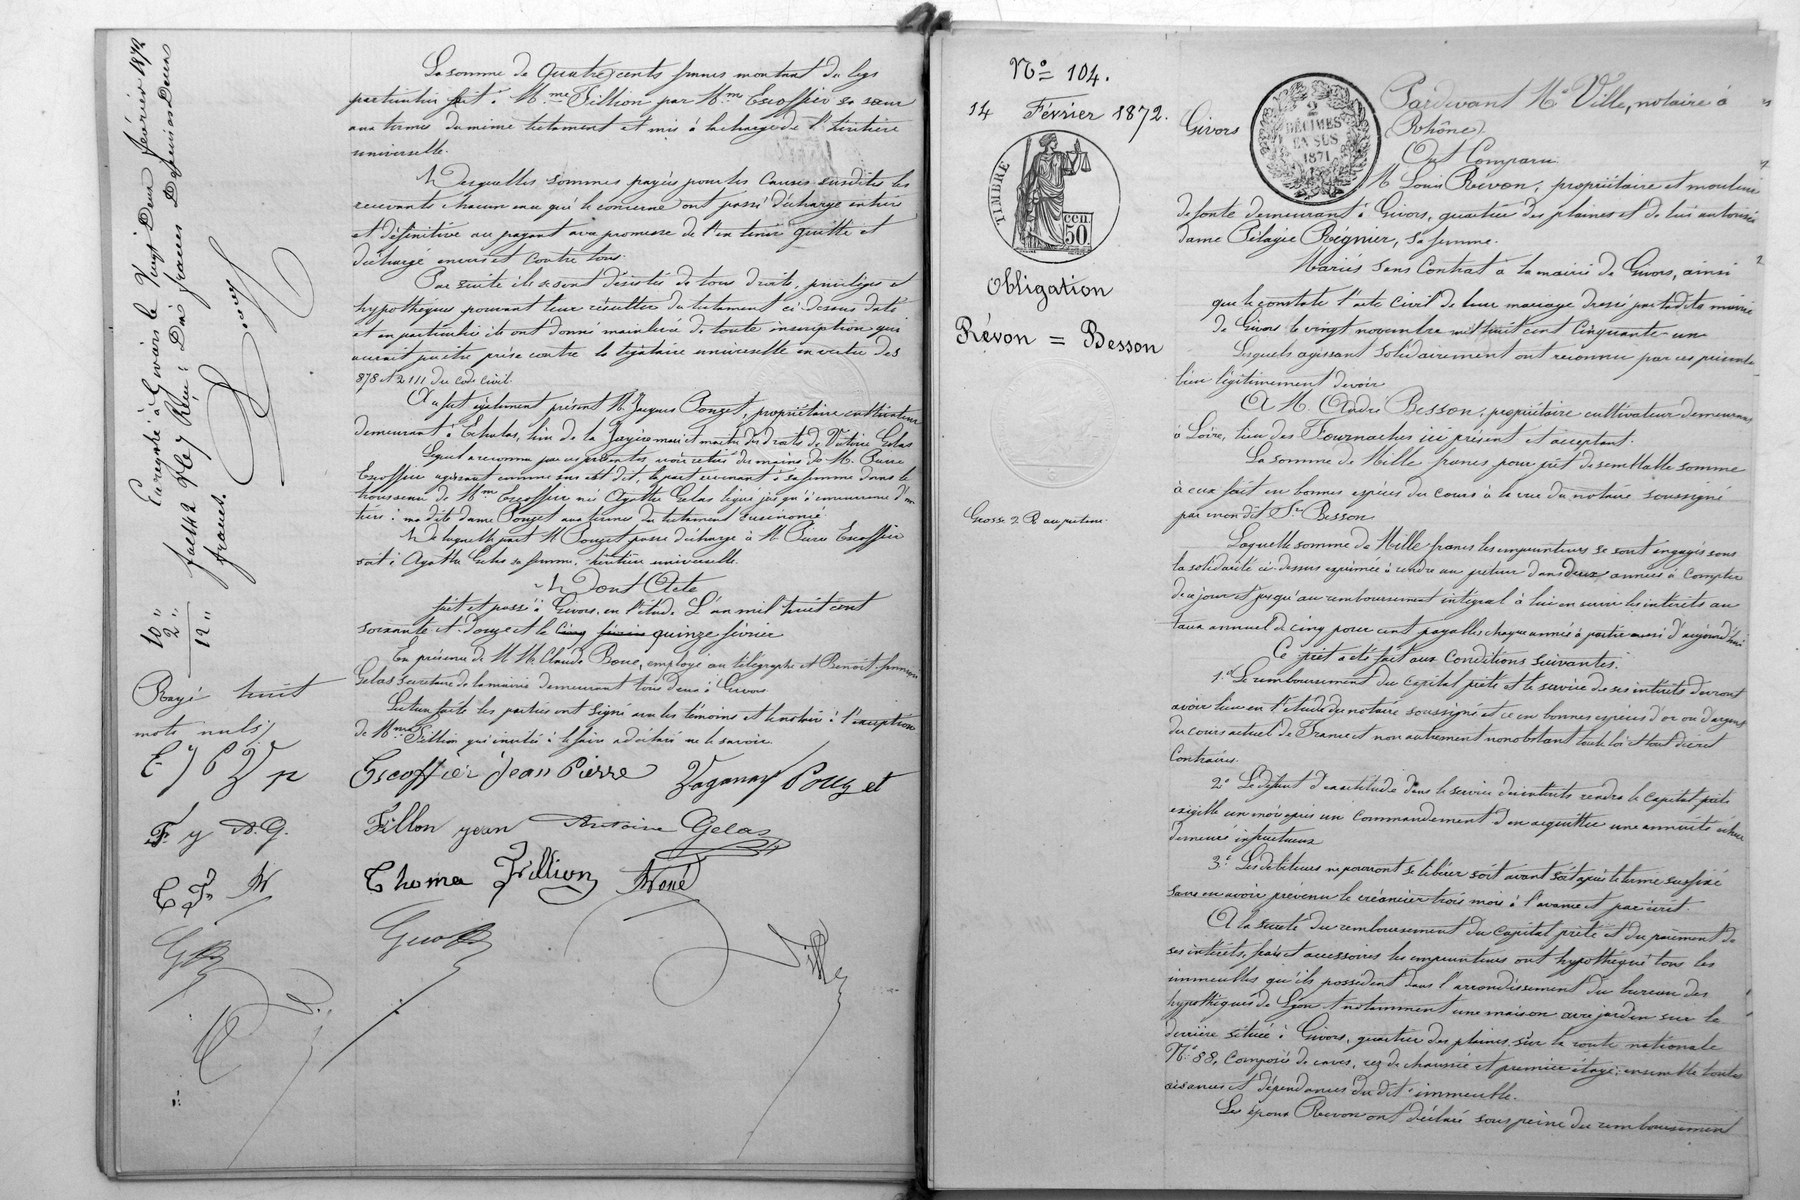 La somme de Quatre cents francs montant du legs
particulier fait à Mme Fillion par Mme Escoffier sa sœur
aux termes du même testament et mis à la charge de l'héritière
universelle.
Desquelles sommes payées pour les causes susdites les
recevants chacun en ce qui le concerne ont passé décharge entière
et définitive au payant avec promesse de l'en tenir quitte et
décharge envers et contre tous.
Par suite ils se sont désistés de tous droits, privilèges et
hypothèques pouvant leur résulter du testament ci-dessus daté
et en particulier ils ont donné mainlevée de toute inscription qui
aurait pu être prise contre la légataire universelle en vertu des
878 et 2111 du code civil.
A u fait également présent M. Jacques Pouzet, propriétaire cultivateur
demeurant à Echalas, lieu de la mari et maître des droits de Victoire Gelas
Lequel a reconnu par ces présentes avoir retiré des mains de M. Pierre
Escoffier agissant comme sus est dit, la part revenant à sa femme dans le
trousseau de Mme Escoffier née Agathe Gelas légué jusqu'à concurrence d'un
tiers à ma dite dame Pouzet aux termes du testament susénoncé
De laquelle part M Pouzet passe décharge à M. Pierre Escoffier
soit à Agathe Gelas sa femme, héritière universelle.
Dont Acte
fait et passé à Givors, en l'étude. L'an mil huit cent
soixante et douze et le cinq février quinze février
En présence de M M. Claude Boue, employé au télégraphe et Benoit françois
Gelas secrétaire de la mairie demeurant tous deux à Givors
Lecture faite les parties ont signé avec les témoins et le notaire à l'exception
de Mme Fillion qui invitée à le faire a déclaré ne le savoir.
Escoffier Jean Pierre Zaganay Pouzet
Fillon jean Antoine Gelas
Thoma Fillion
Ville
Enregistré à Givors le Vingt Deux février 1872
francs Décimes Deux
francs.
10 "
2 "
12 "
Rayé huit
mots nuls
E J P Z p
F y A.G.
C F
No 104.
14 Février 1872.
TIMBRE
cen.
50.
Obligation
Révon = Besson
Grosse 2 R au prêteur.
2
DÉCIMES
EN SUS
1871
Pardevant Me Ville, notaire à
Givors (Rhône)
Ont Comparu
M Louis Revon, propriétaire et mouleur
de fonte demeurant à Givors, quartier des plaines et de lui autorisée
dame Pélagie Régnier, sa femme.
Mariés sans Contrat à la mairie de Givors, ainsi
que le constate l'acte Civil de leur mariage dressé par la dite mairie
de Givors le vingt novembre mil huit cent Cinquante-un
Lesquels agissant solidairement ont reconnu par ces présentes
bien légitimement devoir
A M. André Besson, propriétaire cultivateur demeurant
à Loire, lieu des Fournaches ici présent et acceptant.
La somme de Mille francs pour prêt de semblable somme
à eux fait en bonnes espèces du cours à la vue du notaire soussigné
par mon dit Sr Besson
Laquelle somme de Mille francs les emprunteurs se sont engagés sous
la solidarité ci-dessus exprimée à rendre au prêteur dans deux années à compter
de ce jour et jusqu'au remboursement intégral à lui en servir les intérêts au
taux annuel de cinq pour cent payables chaque année à partir aussi d'aujourd'hui
Ce prêt a été fait aux Conditions suivantes:
1o Le remboursement du Capital prêté et le service de ses intérêts devront
avoir lieu en l'étude du notaire soussigné et ce en bonnes espèces d'or ou d'argent
du cours actuel de France et non autrement nonobstant toute loi et tout décret
Contraires.
2o Le défaut d'exactitude dans le service des intérêts rendra le capital prêté
exigible un mois après un Commandement d'en acquitter une annuité échue
demeuré infructueux
3o Les débiteurs ne pourront se libérer soit avant soit après le terme sus fixé
sans en avoir prévenu le créancier trois mois à l'avance et par écrit.
A la sureté du remboursement du Capital prêté et du paiement de
ses intérêts, frais et accessoires les emprunteurs ont hypothéqué tous les
immeubles qu'ils possèdent dans l'arrondissement du bureau des
hypothèques de Lyon et notamment une maison avec jardin sur le
derrière située à Givors, quartier des plaines, sur la route nationale
No 88, Composée de caves, rez de chaussée et premier étage; ensemble toutes
aisances et dépendances du dit immeuble.
Les époux Revon ont déclaré sous peine du remboursement